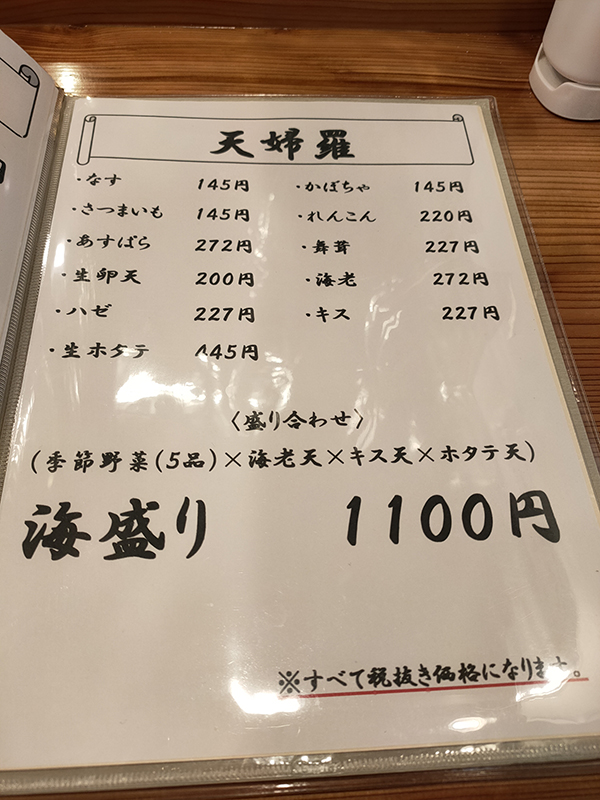 天婦羅
・なす 145円 ・かぼちゃ 145円
・さつまいも 145円 ・れんこん 220円
・あすぱら 272円 ・舞茸 227円
・生卵天 200円 ・海老 272円
・ハゼ 227円 ・キス 227円
・生ホタテ 445円
〈盛り合わせ〉
(季節野菜(5品)×海老天×キス天×ホタテ天)
海盛り 1100円
※すべて税抜き価格になります。